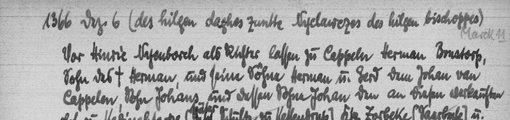 1366 Dez. 6 (des hilgen daghes zunte Nyclawezes des hilgen bisschoppes)
Marck 11
Vor Hinric Nyenborch als Richter lassen zu Cappeln Herman Brustorp,
Sohn des † Herman, und seine Söhne Herman u. Gerd dem Johan van
Cappelen, Sohn Johans, und dessen Sohne Johan den an diesen verkauften